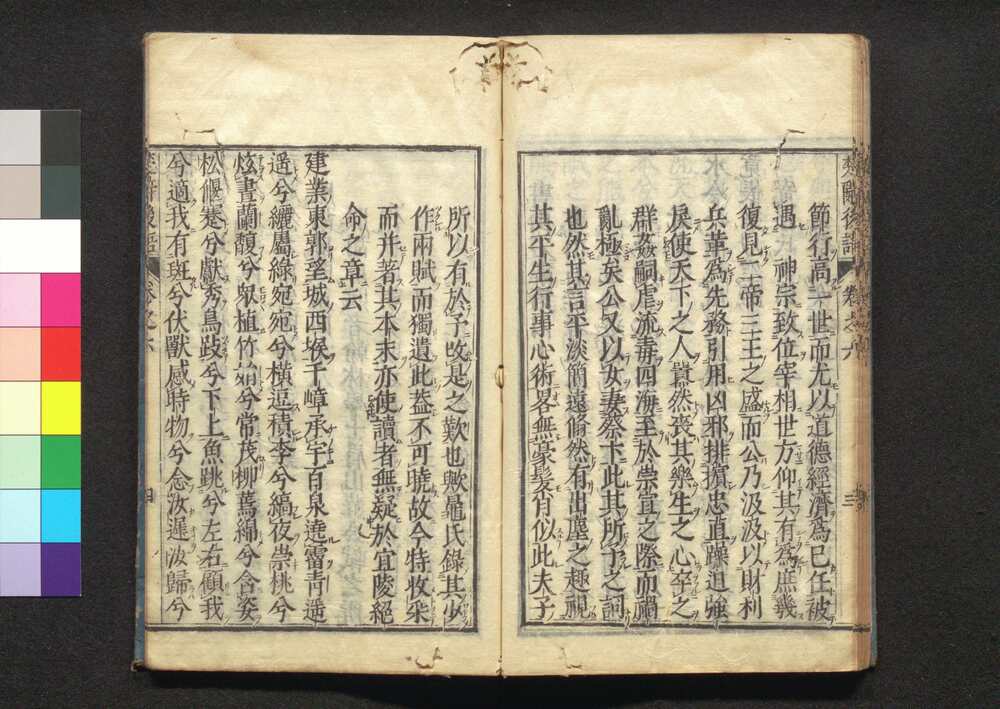 楚辭後語 卷之六 三
節行高一世而尤以道德經濟爲己任被
遇 神宗致位宰相世方仰其有爲庶幾
復見二帝三王之盛而公乃汲汲以財利
兵革爲先務引用凶邪排擯忠直躁迫強
戾使天下之人囂然喪其樂生之心卒之
群姦嗣虐流毒四海至於崇宣之際而禍
亂極矣公又以女妻蔡卞此其所予之詞
也然其言平淡簡遠翛然有出塵之趣視
其平生行事心術畧無毫髮肖似此夫子
所以有於予攺是之歎也歟鼂氏錄其少
作兩賦而獨遺此蓋不可曉故今特收采
而并著其本末亦使讀者無疑於宜陵絕
命之章云
建業東郭望城西堠千嶂承宇百泉遶霤青遥
遥兮纚屬綠宛宛兮橫逗積李兮縞夜崇桃兮
炫晝蘭馥兮眾植竹娟兮常茂柳蔫綿兮含姿
松偃蹇兮獻秀鳥跂兮下上魚跳兮左右顧我
兮適我有斑兮伏獸感時物兮念汝遲汝歸兮
楚辭後語 卷之六 四